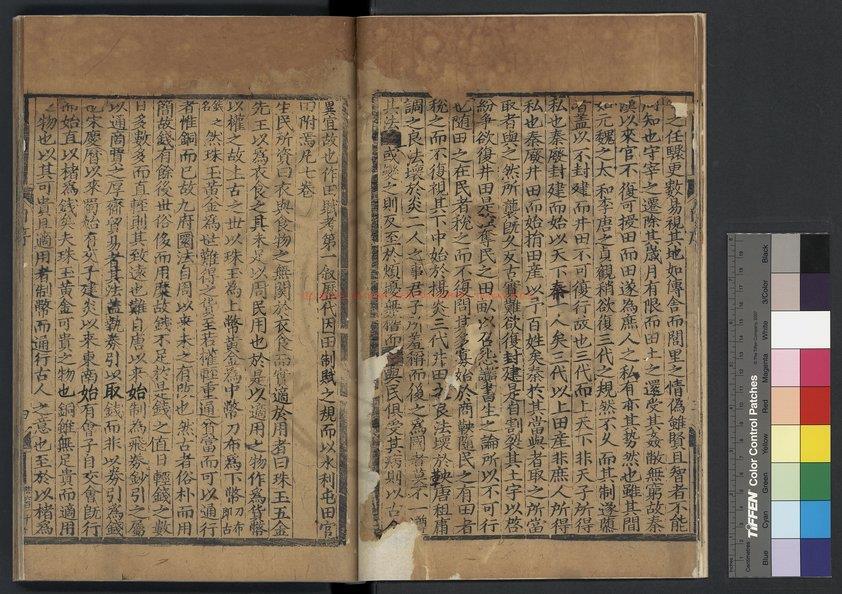 之任驟更數易視其地如傳舍而閭里之情偽雖賢且智者不能
知也守宰之遷除其歲月有限而田土之還受其姦敝無窮故秦
漢以來官不復可授田而田遂為庶人之私有亦其勢然也雖其間
如元魏之太和李唐之貞觀稍欲復三代之規然不久而其制遂隳
者蓋以不封建而井田不可復行故也三代而上天下非天子所得
私也秦廢封建而始以天下奉一人矣三代以上田產非庶人所得
私也秦廢井田而始捐田產以予百姓矣秦於其當與者取之所當
取者與之然所襲既久反古實難欲復封建是自割裂其土宇以啓
紛爭欲復井田是強奪民之田畝以召怨讟書生之論所以不可行
也隨田之在民者稅之而不復問其多寡始於商鞅隨民之有田者
稅之而不復視其丁中始於楊炎三代井田之良法壞於鞅唐租庸
調之良法壞於炎二人之事君子所羞稱而後之為國者莫不一遵
其法或變之則反至於煩擾無稽而國與民俱受其病則以古今
異宜故也作田賦考第一敘歷代因田制賦之規而以水利屯田官
田附焉凡七卷
生民所資曰衣與食物之無關於衣食而實適於用者曰珠玉五金
先王以為衣食之具未足以周民用也於是以適用之物作為貨幣
以權之故上古之世以珠玉為上幣黃金為中幣刀布為下幣 刀布即古
錢名 然珠玉黃金為世難得之貨至若權輕重通貧富而可以通行
者惟銅而已故九府圜法自周以來未之有改也然古者俗朴而用
簡故錢有餘後世俗侈而用糜故錢不足於是錢之值日輕錢之數
日多數多而直輕則其致遠也難自唐以來始制為飛券鈔引之屬
以通商賈之厚齎貿易者其法蓋執券引以取錢而非以券引為錢
也宋慶曆以來蜀始有交子建炎以來東南始有會子自交會既行
而始直以楮為錢矣夫珠玉黃金可貴之物也銅雖無足貴而適用
之物也以其可貴且適用者制幣而通行古人之意也至於以楮為